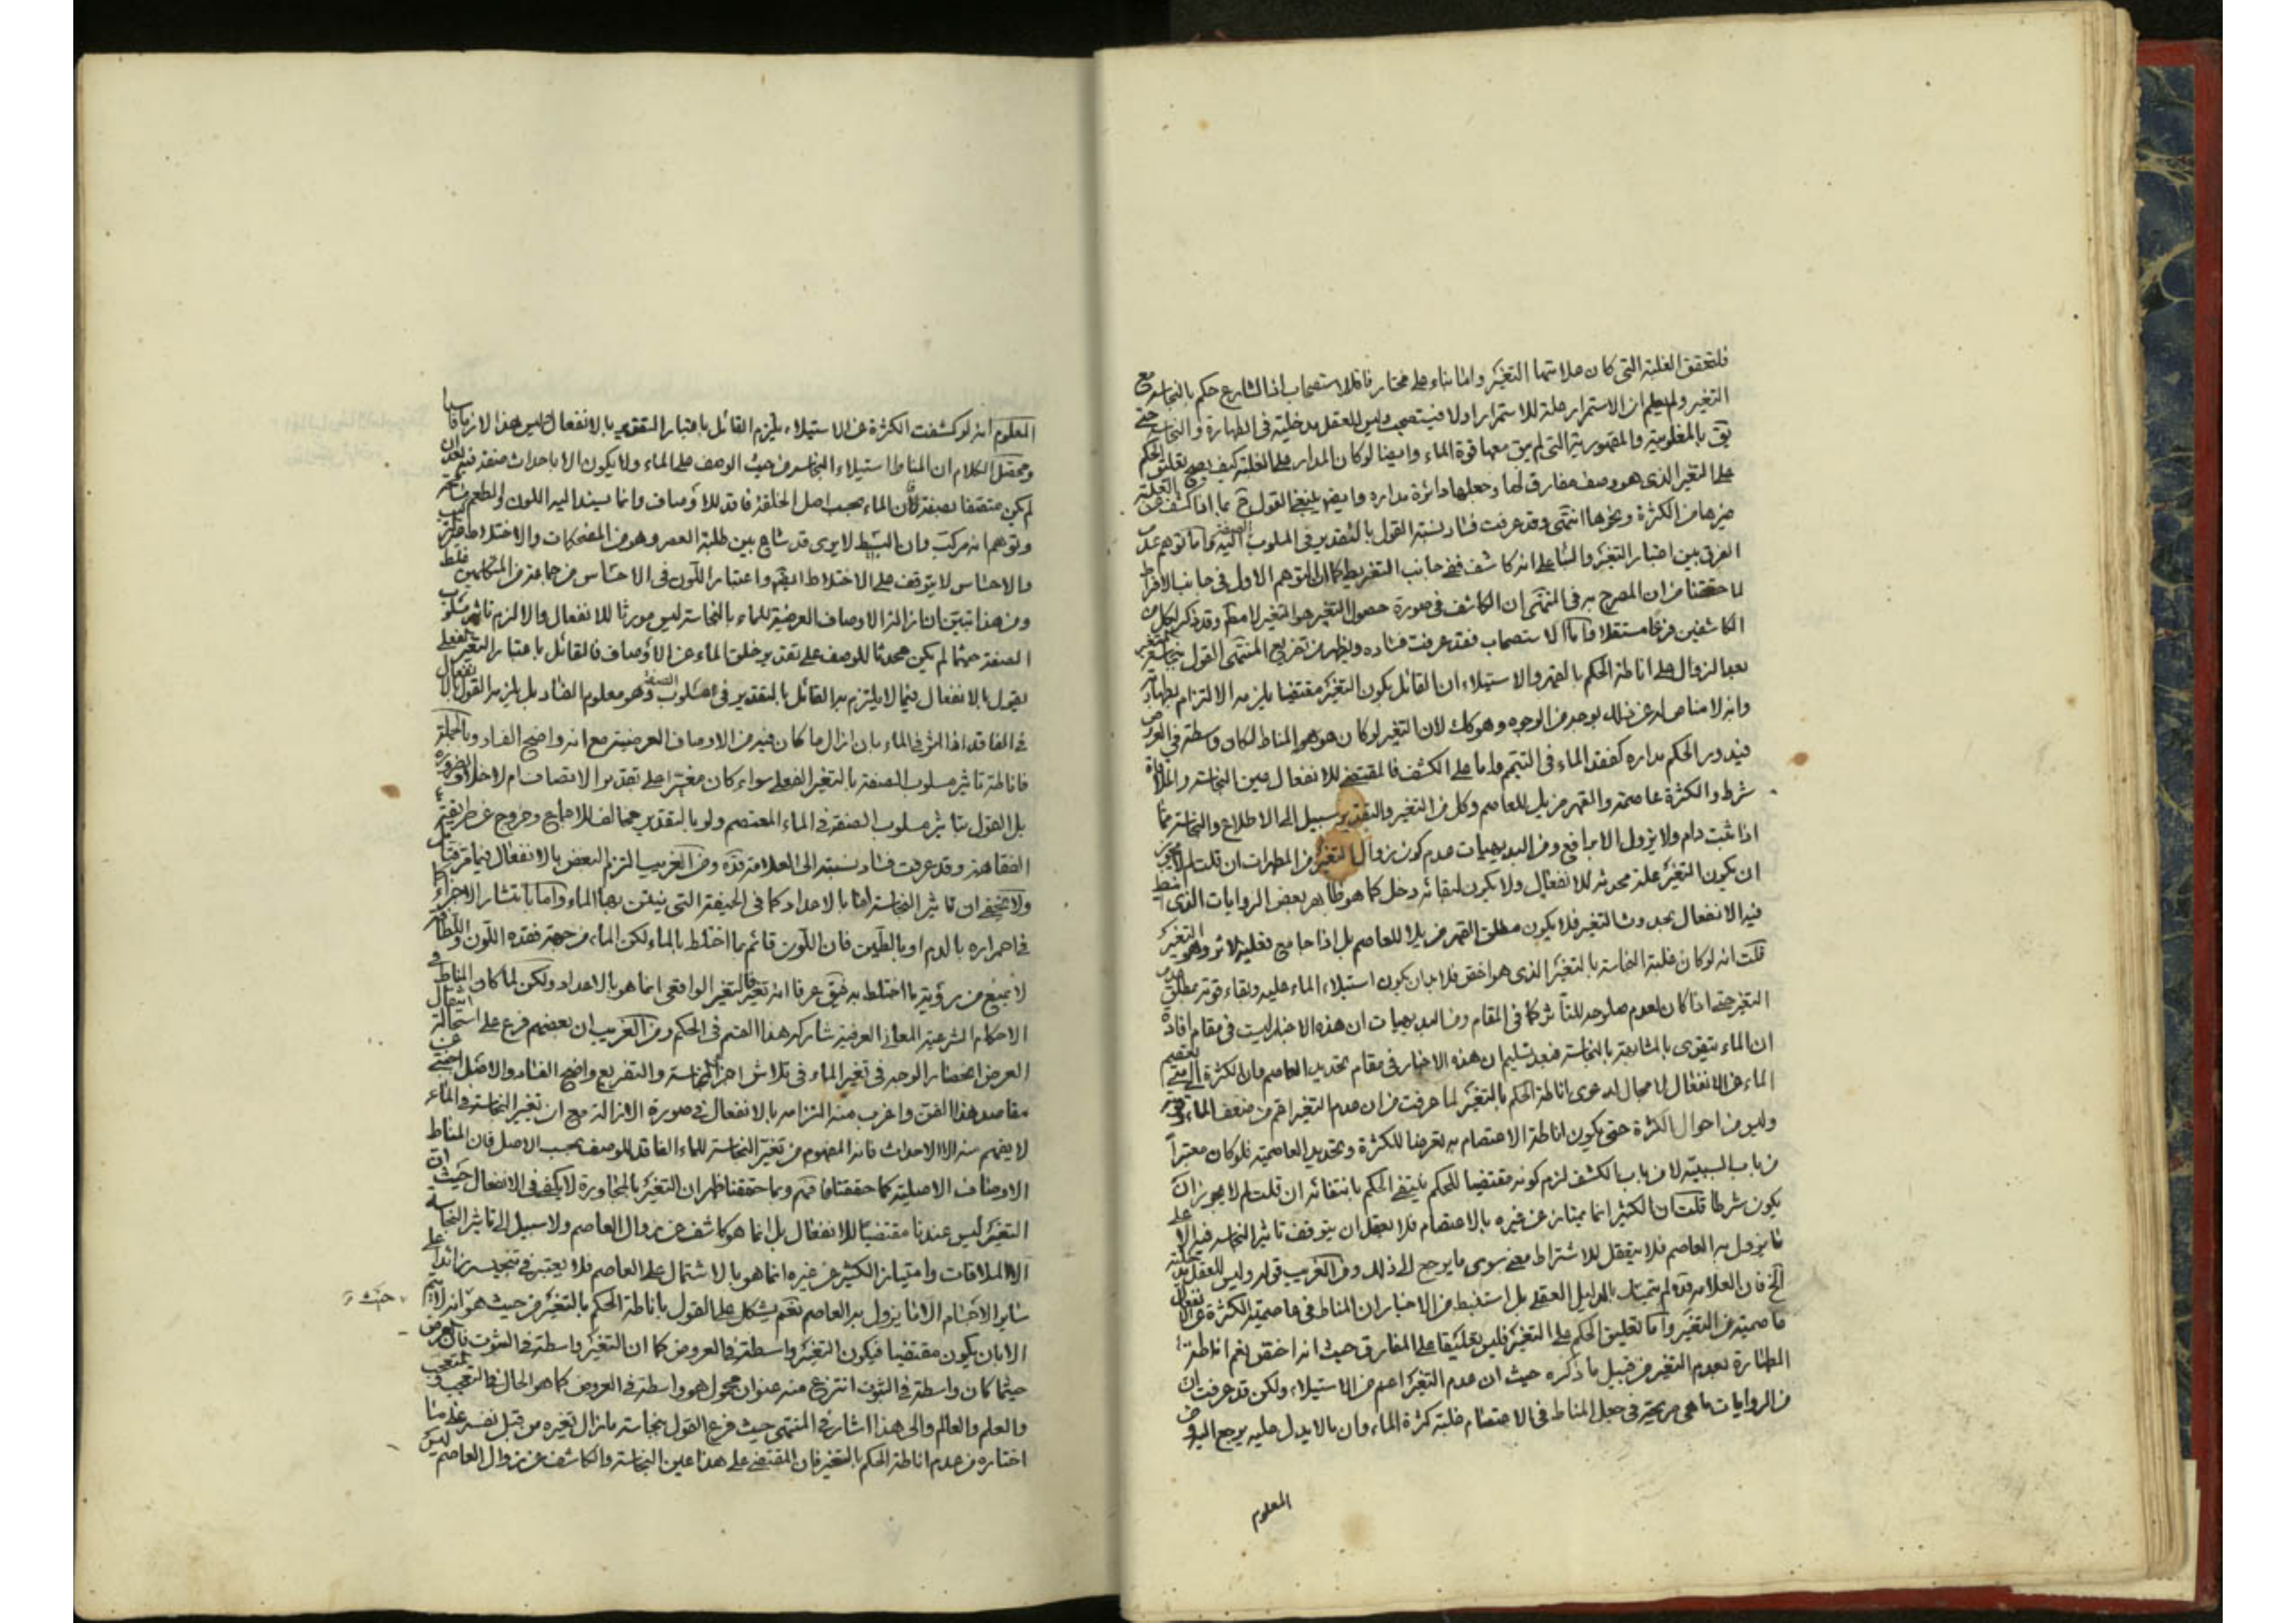 فلتحقق الغلبة التى كان علامتها التغير واما بناء على مختاره فللاستصحاب اذ الشارع حكم بالنجاسة مع
التغير ولم يعلم ان الاستمرار علة للاستمرار اولا فيستصحب وليس للعقل مدخلية فى الطهارة والنجاسة حتى
يق بالمغلوبية والمقهورية التى لم يبق معها قوة الماء وايضا لو كان المدار على الغلبة كيف يصح تعليق الحكم
على التغير الذى هو وصف مفارق لها وجعلها دائرة مداره وايض ينبغى القول ح بما اذا كشف عن الغلبة
غيرها من الكثرة ونحوها انتهى وقد عرفت فساد نسبة القول بالتقدير فى المسلوب الصفة اليه واما توهم عدم
الفرق بين اعتبار التغير والبناء على انه كاشف ففى جانب التفريط كما ان التوهم الاول فى جانب الافراط
لما حققنا من ان المصرح به فى المنتهى ان الكاشف فى صورة حصول التغير هو التغير لا مطم وقد ذكر لكل من
الكاشفين فرعا مستقلا واما الاستصحاب فقد عرفت فساده ويظهر من تفريع المنتهى القول بنجاسة المتغير
بعد الزوال على اناطة الحكم بالقهر والاستيلاء ان القائل بكون التغير مقتضيا يلزمه الالتزام بطهارته
وانه لا مناص له عن ذلك بوجه من الوجوه وهو كك لان التغير لو كان هو المناط لكان واسطة فى العروض
فيدور الحكم مداره كفقد الماء فى التيمم واما على الكشف فالمقتضى للانفعال عين النجاسة والملاقاة
شرط والكثرة عاصمة والقهر مزيل للعاصم وكل من التغير والتقدير سبيل الى الاطلاع والنجاسة مما
اذا ثبت دام ولا يزول الا برافع ومن البديهيات عدم كون زوال التغير من المطهرات ان قلت لم لا يجوز
ان يكون التغير علة محدثة للانفعال ولا يكون لبقائه دخل كما هو ظاهر بعض الروايات الذى انيط
فيه الانفعال بحدوث التغير فلا يكون مطلق القهر مزيلا للعاصم بل اذا جامع فعلية الاثر وهو التغير
قلت انه لو كان غلبة النجاسة بالتغير الذى هو اخفى فلا بد ان يكون استيلاء الماء عليه وبقاء قوته مطلق عدم
التغير حتى اذا كان لعدم صلوحه للتأثر كما فى المقام ومن البديهيات ان هذه الاخبار ليست فى مقام افادة
ان الماء يتقوى بالمشابهة بالنجاسة فبعد تسليم ان هذه الاخبار فى مقام تحديد العاصم وان الكثرة الى متى تعصم
الماء عن الانفعال لا مجال لدعوى اناطة الحكم بالتغير لما عرفت من ان عدم التغير اعم من ضعف الماء وقوته
وليس من احوال الكثرة حتى يكون اناطة الاعتصام به تعرضا للكثرة وتحديد العاصمية فلو كان معتبرا
من باب السببية لا من باب الكشف لزم كونه مقتضيا للحكم فينتفى الحكم بانتفائه ان قلت لم لا يجوز ان
يكون شرطا قلت ان الكثير انما يمتاز عن غيره بالاعتصام فلا يعقل ان يتوقف تاثير النجاسة فيه الا على
ما يزول به العاصم فلا يتعقل للاشتراط معنى سوى ما يرجع الى ذلك ومن الغريب قوله وليس للعقل مدخلية
الخ فان العلامة قده لم يتمسك بالدليل العقلى بل استنبط من الاخبار ان المناط فى عاصمية الكثرة عن الانفعال
عاصميته من التغير واما تعليق الحكم على التغير فليس تعليقا على المفارق حيث انه اخفى نعم اناطة
الطهارة بعدم التغير من قبيل ما ذكره حيث ان عدم التغير اعم من الاستيلاء ولكن قد عرفت ان
من الروايات ما هى صريحة فى جعل المناط فى الاعتصام غلبة كثرة الماء وان ما لا يدل عليه يرجع اليه ومن
المعلوم
المعلوم انه لو كشفت الكثرة عن الاستيلاء يلزم القائل باعتبار التقدير بالانفعال وليس هذا الازما فاسدا
ومحصل الكلام ان المناط استيلاء النجاسة من حيث الوصف على الماء ولا يكون الا باحداث صفة فيه بعد ان
لم يكن متصفا بصفة فان الماء بحسب اصل الخلقة فاقد للاوصاف وانما يسند اليه اللون والطعم
وتوهم انه مركب وان البسيط لا يرى قد شاع بين طلبة العصر وهو من المضحكات والاختلاط
والاحساس لا يتوقف على الاختلاط البتة واعتبار اللون فى الاحساس من جماعة من المتكلمين غلط
ومن هذا تبين ان ازالة الاوصاف العرضية للماء بالنجاسة ليس مورثا للانفعال والا لزم تاثير مسلوب
الصفة حيثما لم يكن محدثا للوصف على تقدير خلق الماء عن الاوصاف فالقائل باعتبار التغير الفعلى
يقول بالانفعال فيما لا يلتزم به القائل بالتقدير فى مسلوب الصفة وهو معلوم الفساد بل يلزمه القول بالانفعال
فى الفاقد اذا اثر فى الماء بان ازال ما كان فيه من الاوصاف العرضية مع انه واضح الفساد وبالجملة
فاناطة تاثير مسلوب الصفة بالتغير الفعلى سواء كان مغيرا على تقدير الاتصاف ام لا خلاف الضرورة
بل القول بتاثير مسلوب الصفة فى الماء المعتصم ولو بالتقدير مخالف للاجماع وخروج عن طريقة
الفقاهة وقد عرفت فساد نسبته الى العلامة قده ومن الغريب التزام البعض بالانفعال فيما مر
ولا يخفى ان تاثير النجاسة اما بالاعداد كما فى الجيفة التى ينتن بها الماء واما بانتشار الاجزاء كما
فى احمراره بالدم او بالطين فان اللون قائم بما اختلط بالماء لكن الماء من جهة فقده اللون واللطافة
لا يمنع من رؤية ما اختلط به فيق عرفا انه تغير فالتغير الواقعى انما هو بالاعداد ولكن لما كان المناط فى
الاحكام الشرعية المعانى العرفية شاركه هذا القسم فى الحكم ومن الغريب ان بعضهم فرع على استحالة انتقال
العرض انحصار الوجه فى تغير الماء فى تلاش اجزاء النجاسة والتفريع واضح الفساد والاصل اجنبى عن
مقاصد هذا الفن واغرب منه التزامه بالانفعال فى صورة الازالة مع ان تغير النجاسة فى الماء
لا يفهم منه الا الاحداث فانه المفهوم من تغير النجاسة للماء الفاقد للوصف بحسب الاصل فان المناط
الاوصاف الاصلية كما حققنا فافهم وبما حققنا ظهر ان التغير بالمجاورة لا يكفى فى الانفعال حيث ان
التغير ليس عندنا مقتضيا للانفعال بل انما هو كاشف عن زوال العاصم ولا سبيل الى تاثير النجاسة
الا الملاقات وامتياز الكثير عن غيره انما هو بالاشتمال على العاصم فلا يعتبر فى تنجيسه زائدا على
سائر الاجسام الا ما يزول به العاصم نعم يشكل على القول باناطة الحكم بالتغير من حيث هو انه لا يتم
الا بان يكون مقتضيا فيكون التغير واسطة فى العروض كما ان التغير واسطة فى الثبوت فان العرض
حيثما كان واسطة فى الثبوت انتزع منه عنوان محمول هو واسطة فى العروض كما هو الحال فى التعجب والمتعجب
والعلم والعالم والى هذا اشار فى المنتهى حيث فرع القول بنجاسة ما زال تغيره من قبل نفسه على ما
اختاره من عدم اناطة الحكم بالتغير فان المقتضى على هذا عين النجاسة والكاشف عن زوال العاصم ليس